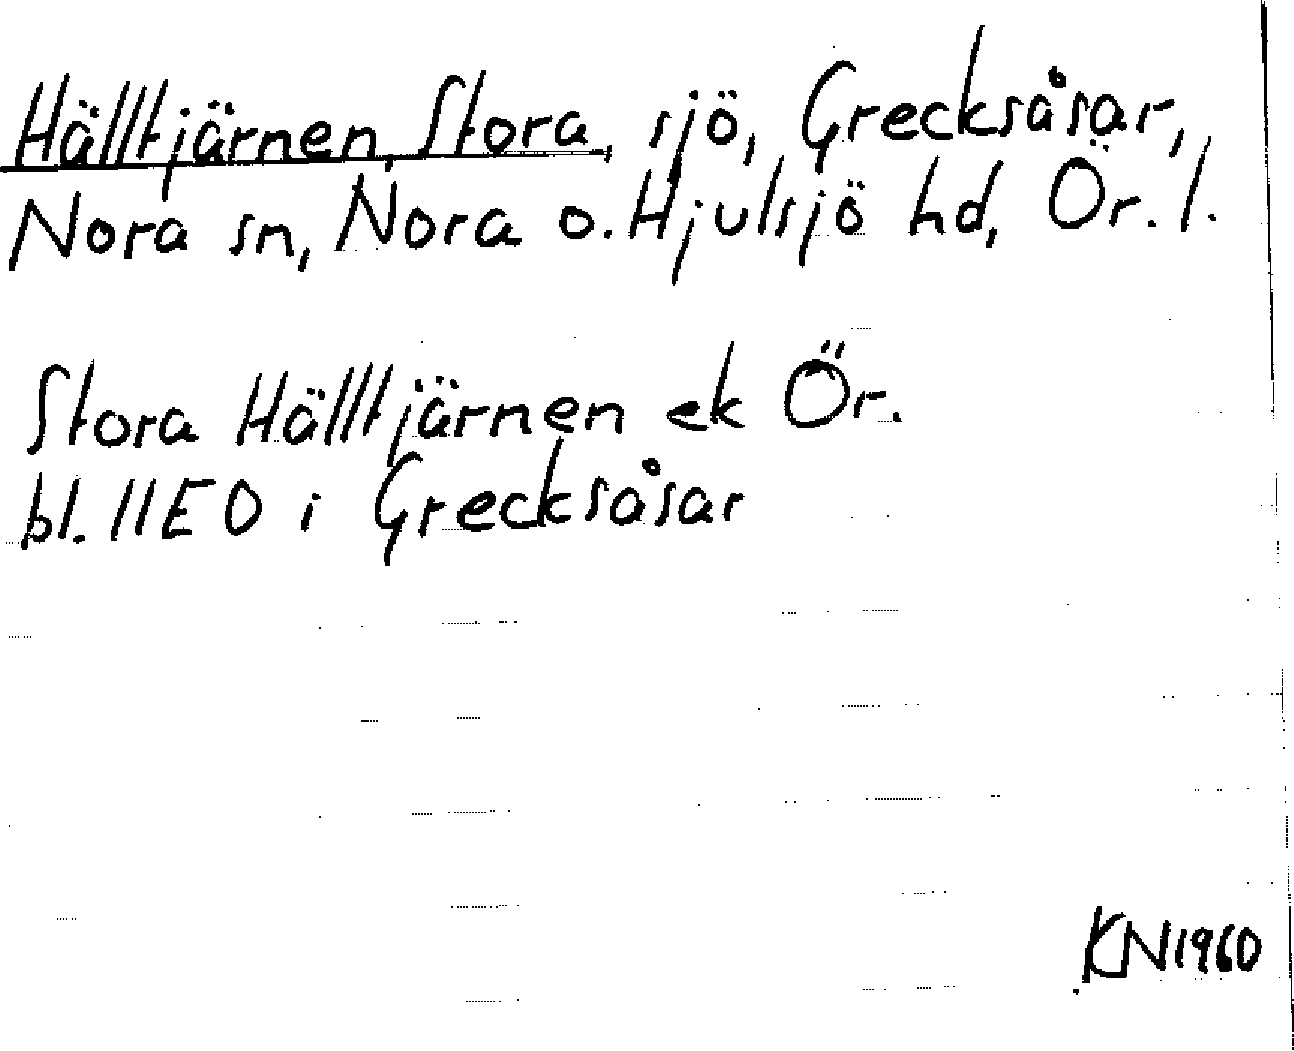 Hälltjärnen, Stora, sjö, Grecksåsar,
Nora sn, Nora o. Hjulsjö hd, Ör. l.
Stora Hälltjärnen ek Ör.
bl. 11EO i Grecksåsar
KN1960